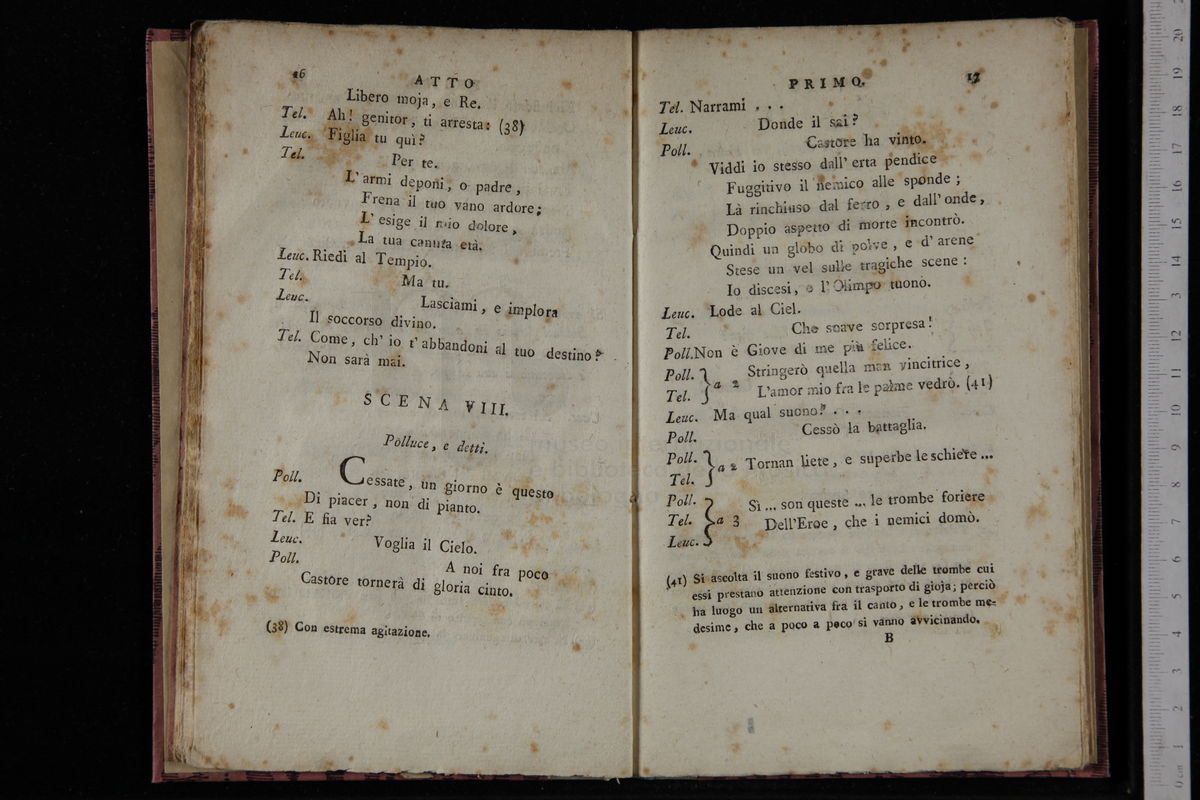 16
ATTO
Libero moja, e Re.
Tel. Ah! genitor, ti arresta: (38)
Leuc. Figlia tu quì?
Tel. Per te.
L'armi deponi, o padre,
Frena il tuo vano ardore;
L'esige il mio dolore,
La tua canuta età.
Leuc. Riedi al Tempio.
Tel. Ma tu.
Leuc. Lasciami, e implora
Il soccorso divino.
Tel. Come, ch'io t'abbandoni al tuo destino?
Non sarà mai.
SCENA VIII.
Polluce, e detti.
Poll. Cessate, un giorno è questo
Di piacer, non di pianto.
Tel. E fia ver?
Leuc. Voglia il Cielo.
Poll. A noi fra poco
Castore tornerà di gloria cinto.
(38) Con estrema agitazione.
PRIMO.
17
Tel. Narrami . . .
Leuc. Donde il sai?
Poll. Castore ha vinto.
Viddi io stesso dall'erta pendice
Fuggitivo il nemico alle sponde;
Là rinchiuso dal ferro, e dall'onde,
Doppio aspetto di morte incontrò.
Quindi un globo di polve, e d'arene
Stese un vel sulle tragiche scene:
Io discesi, e l'Olimpo tuonò.
Leuc. Lode al Ciel.
Tel. Che soave sorpresa!
Poll. Non è Giove di me più felice.
Poll. } a 2 Stringerò quella man vincitrice,
Tel. } L'amor mio fra le palme vedrò. (41)
Leuc. Ma qual suono? . . .
Poll. Cessò la battaglia.
Poll. } a 2 Tornan liete, e superbe le schiere ...
Tel. }
Poll. } Sì ... son queste ... le trombe foriere
Tel. } a 3 Dell'Eroe, che i nemici domò.
Leuc. }
(41) Si ascolta il suono festivo, e grave delle trombe cui
essi prestano attenzione con trasporto di gioja; perciò
ha luogo un alternativa fra il canto, e le trombe me-
desime, che a poco a poco si vanno avvicinando.
B